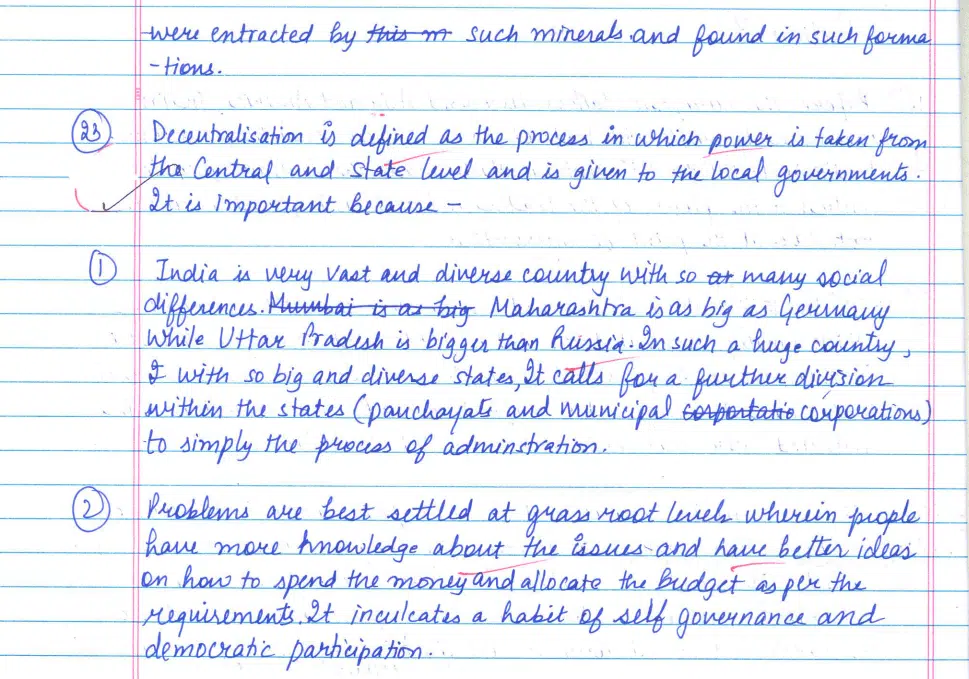 were entracted by this m such minerals and found in such forma
-tions.
23 Decentralisation is defined as the process in which power is taken from
the Central and state level and is given to the local governments.
It is important because -
1 India is very vast and diverse country with so at many social
differences. Mumbai is as big Maharashtra is as big as Germany
while Uttar Pradesh is bigger than Russia. In such a huge country,
I with so big and diverse states, It calls for a further division
within the states (panchayats and municipal corportatio corporations)
to simply the process of adminstration.
2 Problems are best settled at grass root levels wherein people
have more knowledge about the issues and have better ideas
on how to spend the money and allocate the budget as per the
requirements. It inculcates a habit of self governance and
democratic participation.